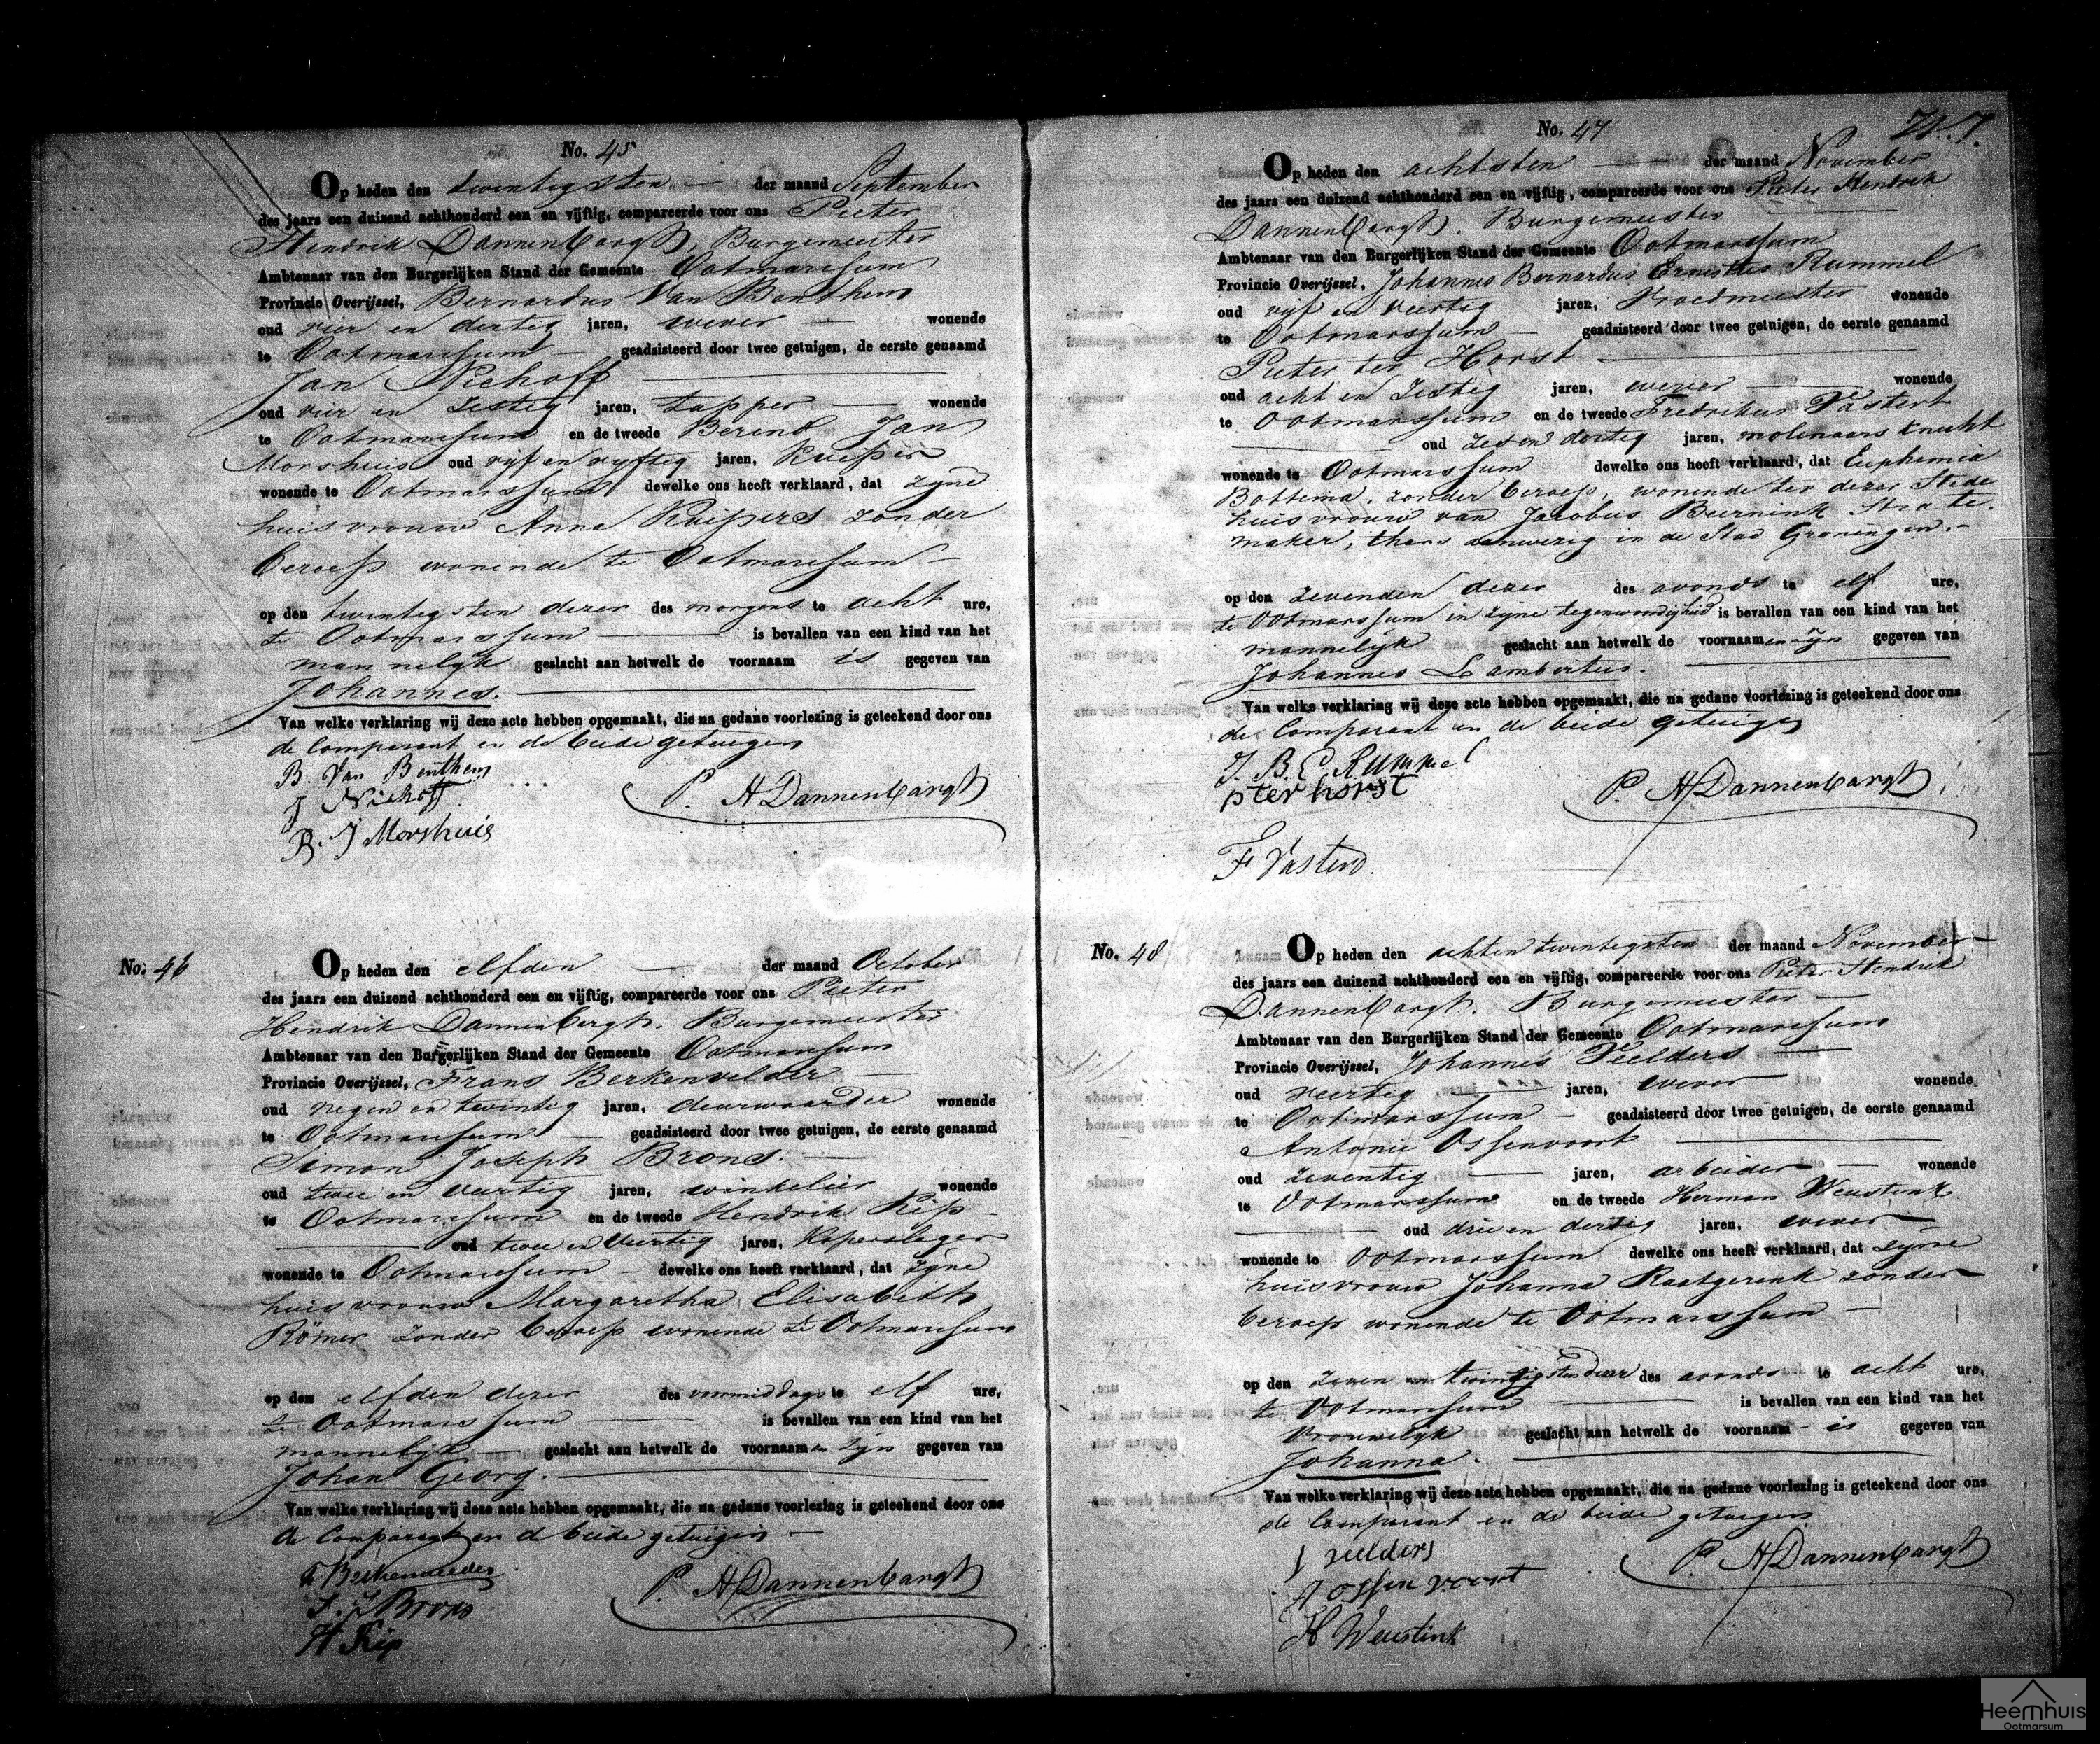 No. 45
Op heden den twintigsten — der maand September
des jaars een duizend achthonderd een en vijftig, compareerde voor ons Pieter
Hendrik Dannenbargh, Burgemeester
Ambtenaar van den Burgerlijken Stand der Gemeente Ootmarssum
Provincie Overijssel, Bernardus Van Benthem
oud vier en dertig jaren, wever — wonende
te Ootmarssum — geadsisteerd door twee getuigen, de eerste genaamd
Jan Niehoff
oud vier en zestig jaren, tapper — wonende
te Ootmarssum en de tweede Berend Jan
Morshuis oud vijf en vijftig jaren, Kuiper
wonende te Ootmarssum dewelke ons heeft verklaard, dat zijne
huisvrouw Anna Kuipers zonder
beroep wonende te Ootmarssum —
op den twintigsten dezer des morgens te acht ure,
te Ootmarssum — is bevallen van een kind van het
mannelijk geslacht aan hetwelk de voornaam is gegeven van
Johannes. —
Van welke verklaring wij deze acte hebben opgemaakt, die na gedane voorlezing is geteekend door ons
de Comparant en de beide getuigen
B. Van Benthem
J Niehoff
B. J Morshuis
P. H Dannenbargh
No. 46
Op heden den elfden — der maand October
des jaars een duizend achthonderd een en vijftig, compareerde voor ons Pieter
Hendrik Dannenbergh. Burgemeester
Ambtenaar van den Burgerlijken Stand der Gemeente Ootmarssum
Provincie Overijssel, Frans Berkenvelder —
oud negen en twintig jaren, deurwaarder wonende
te Ootmarssum — geadsisteerd door twee getuigen, de eerste genaamd
Simon Joseph Brons. —
oud twee en veertig jaren, winkelier wonende
te Ootmarssum en de tweede Hendrik Kip —
— oud twee en veertig jaren, Koperslager
wonende te Ootmarssum — dewelke ons heeft verklaard, dat zijne
huisvrouw Margaretha Elisabeth
Römer zonder beroep wonende te Ootmarssum
op den elfden dezer des voormiddags te elf ure,
te Ootmarssum — is bevallen van een kind van het
mannelijk — geslacht aan hetwelk de voornaamen zijn gegeven van
Johan Georg. —
Van welke verklaring wij deze acte hebben opgemaakt, die na gedane voorlezing is geteekend door ons
de Comparant en d beide getuigen —
F Berkenvelder
S. J Brons
H Kip
P. H Dannenbargh
No. 47
Op heden den achtsten — der maand November
des jaars een duizend achthonderd een en vijftig, compareerde voor ons Pieter Hendrik
Dannenbargh. Burgemeester
Ambtenaar van den Burgerlijken Stand der Gemeente Ootmarssum
Provincie Overijssel, Johannes Bernardus Ernestus Rummel
oud vijf en veertig jaren, Vroedmeester wonende
te Ootmarssum — geadsisteerd door twee getuigen, de eerste genaamd
Pieter ter Horst —
oud acht en zestig jaren, wever — wonende
te Ootmarssum en de tweede Fredrikus Vastert
— oud zes en dertig jaren, molenaars knecht
wonende te Ootmarssum dewelke ons heeft verklaard, dat Euphemia
Bottema, zonder beroep, wonende ter dezer Stede
huisvrouw van Jacobus Beernink Strate.
maker, thans aanwezig in de Stad Groningen. –
op den zevenden dezer des avonds te elf ure,
te Ootmarssum in zijne tegenwoordigheid is bevallen van een kind van het
mannelijk geslacht aan hetwelk de voornaamen zijn gegeven van
Johannes Lambertus. —
Van welke verklaring wij deze acte hebben opgemaakt, die na gedane voorlezing is geteekend door ons
de Comparant en de beide getuigen
J. B. E Rummel
p ter horst
F Vasterd
P. H Dannenbargh
No. 48
Op heden den acht en twintigsten der maand November —
des jaars een duizend achthonderd een en vijftig, compareerde voor ons Pieter Hendrik
Dannenbargh. Burgemeester —
Ambtenaar van den Burgerlijken Stand der Gemeente Ootmarssum
Provincie Overijssel, Johannes Veelders —
oud veertig — jaren, wever — wonende
te Ootmarssum — geadsisteerd door twee getuigen, de eerste genaamd
Antonie Ossenvoort —
oud zeventig — jaren, arbeider — wonende
te Ootmarssum en de tweede Herman Weustink
— oud drie en dertig jaren, wever —
wonende te Ootmarssum dewelke ons heeft verklaard, dat zijne
huisvrouw Johanna Raatgerink zonder
beroep wonende te Ootmarssum —
op den zeven en twintigsten dezer des avonds te acht ure,
te Ootmarssum — is bevallen van een kind van het
Vrouwelijk geslacht aan hetwelk de voornaam – is gegeven van
Johanna. —
Van welke verklaring wij deze acte hebben opgemaakt, die na gedane voorlezing is geteekend door ons
de Comparant en de beide getuigen
J veelders
A ossenvoort
H Weustink
P. H Dannenbargh
Heemhuis
Ootmarsum